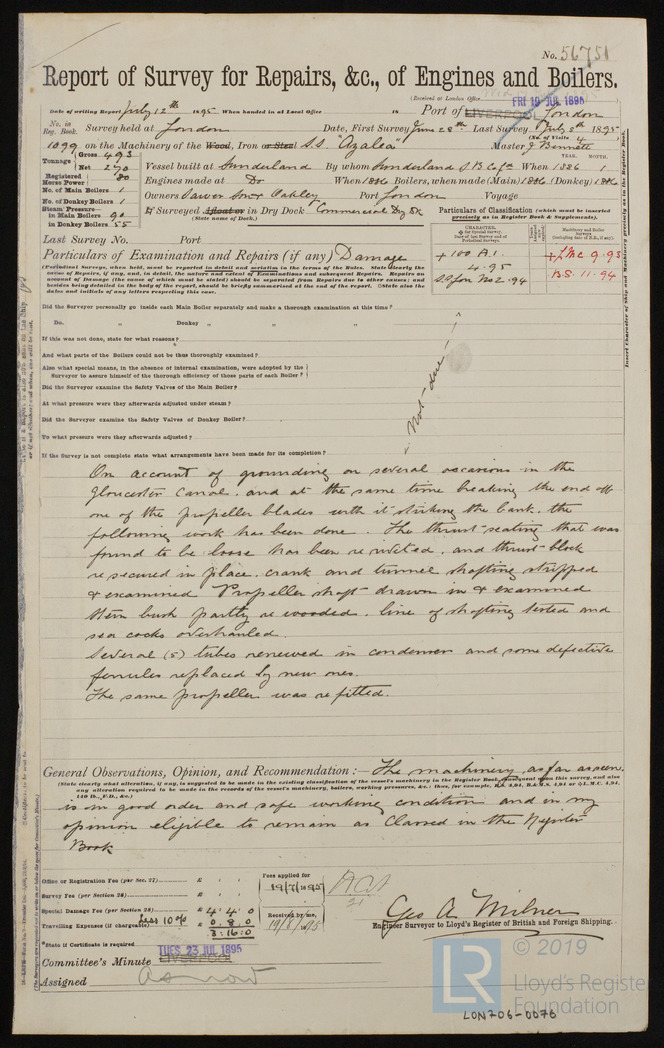 No. 56751
Report of Survey for Repairs, &c., of Engines and Boilers.
(Received at London Office
FRI 19 JUL 1895
Date of writing Report July 12th 1895 When handed in at Local Office 18 Port of LIVERPOOL London
No. in Reg. Book. Survey held at London Date, First Survey June 28th Last Survey July 8th 1895
(No. of Visits 4
1099 on the Machinery of the Wood, Iron or Steel S.S. "Azalea" Master J. Bennett
Tonnage Gross 493 Net 270
Vessel built at Sunderland By whom Sunderland S B Co Ld When 1886 1
YEAR. MONTH.
Registered Horse Power 80
Engines made at Do When 1886 Boilers, when made (Main) 1886 (Donkey) 1886
No. of Main Boilers 1
Owners Port London Voyage
No. of Donkey Boilers 1
Steam Pressure in Main Boilers 90
in Donkey Boilers 55
If Surveyed Afloat or in Dry Dock Commercial Dry Dk
(State name of Dock.)
Particulars of Classification (which must be inserted precisely as in Register Book & Supplements).
Last Survey No. Port
CHARACTER.
+ 100 A.1.
4.95
S.S. Lon No 2-94
+ L.M.C. 9.93
B.S. 11.94
Particulars of Examination and Repairs (if any) Damage
(Periodical Surveys, when held, must be reported in detail and seriatim in the terms of the Rules. State clearly the
nature of Repairs, if any, and, in detail, the nature and extent of Examinations and subsequent Repairs. Repairs on
account of Damage (the cause of which must be stated) should be separated from Repairs due to other causes; and
besides being detailed in the body of the report, should be briefly summarised at the end of the report. State also the
dates and initials of any letters respecting this case.
Did the Surveyor personally go inside each Main Boiler separately and make a thorough examination at this time?
Do. " Donkey " " " "
If this was not done, state for what reasons?
And what parts of the Boilers could not be thus thoroughly examined?
Also what special means, in the absence of internal examination, were adopted by the
Surveyor to assure himself of the thorough efficiency of those parts of each Boiler?
Did the Surveyor examine the Safety Valves of the Main Boiler?
At what pressure were they afterwards adjusted under steam?
Did the Surveyor examine the Safety Valves of Donkey Boiler?
To what pressure were they afterwards adjusted?
If the Survey is not complete state what arrangements have been made for its completion?
Not due
On account of grounding on several occasions in the
Gloucester Canal, and at the same time breaking the end off
one of the propeller blades with it striking the bank, the
following work has been done. The thrust seating that was
found to be loose has been re riveted, and thrust block
re secured in place. crank and tunnel shafting stripped
& examined Propeller shaft drawn in & examined
Stern bush partly re wooded. line of shafting tested and
sea cocks overhauled.
Several (5) tubes renewed in condenser and some defective
ferrules replaced by new ones.
The same propeller was refitted.
General Observations, Opinion, and Recommendation:— The machinery, as far as seen,
(State clearly what alteration, if any, is suggested to be made in the existing classification of the vessel's machinery in the Register Book, consequent upon this survey, and also
any alteration required to be made in the records of the vessel's machinery, boilers, working pressures, &c.: thus, for example, B.S. 4,94, B.&M.S. 4,94 or L.M.C. 4,94,
140 lb., F.D., &c.)
is in good order and safe working condition and in my
opinion eligible to remain as Classed in the Register
Book
Office or Registration Fee (per Sec. 27) £ : :
Fees applied for
19/7/1895
Survey Fee (per Section 28) £ : :
Special Damage Fee (per Section 28) £ 4:4:0
Less 10%
Travelling Expenses (if chargeable) £ 0.8.0
3:16:0
Received by me,
19/8/1895
*State if Certificate is required
Geo A. Milner
Engineer Surveyor to Lloyd's Register of British and Foreign Shipping.
Committee's Minute TUES 23 JUL 1895
LIVERPOOL
Assigned as now
© 2019
LR
Lloyd's Register
Foundation
LON706-0076